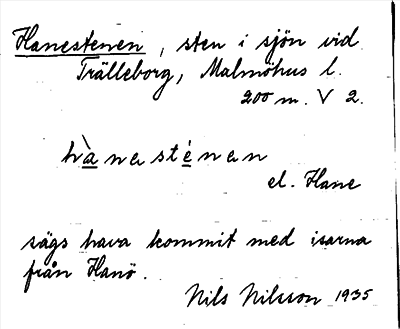 Hanestenen, sten i sjön vid
Trälleborg, Malmöhus l.
200 m. V 2.
hànesténen
el. Hane
sägs hava kommit med isarna
från Hanö.
Nils Nilsson 1935